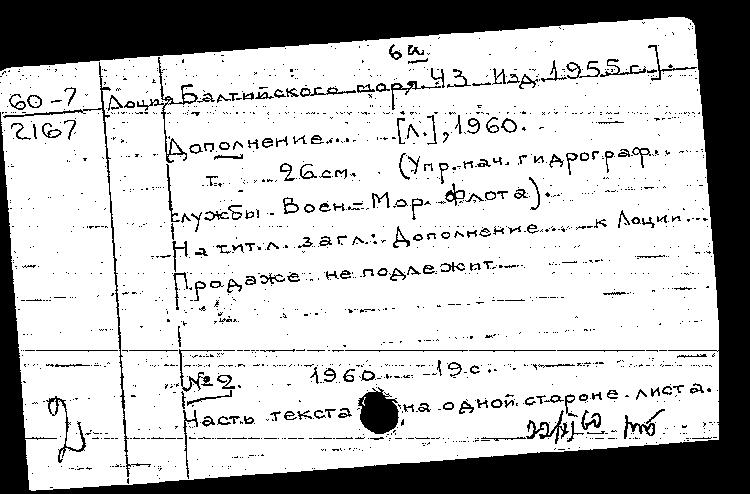 6а
60-7 [Лоция Балтийского моря. Ч 3. Изд. 1955 г.].
2167
Дополнение... [Л.], 1960.
т. 26 см. (Упр. нач. гидрограф.
службы Воен.-Мор. Флота).
На тит. л. загл.: Дополнение... к Лоции...
Продаже не подлежит.
№ 2. 1960. 19 с.
Часть текста на одной стороне листа.
2